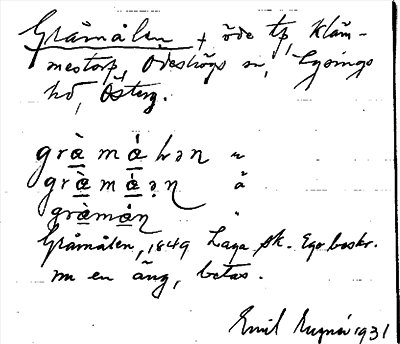 Gråmålen † öde tp, Kläm-
mestorp, Ödeshögs sn, Lysings
hd, Österg.
grà̱ má̱ hən
grà̱ má̱ ən
grà̱má̱n
Gråmålen, 1849 Laga sk. Ego beskr.
nu en äng, betas.
Emil 1931